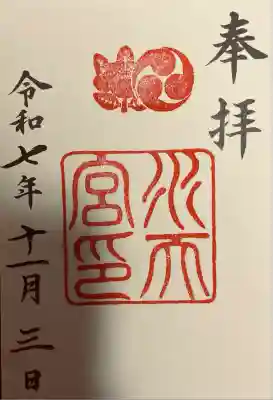 奉拝
水天
宮印
令和七年十一月三日